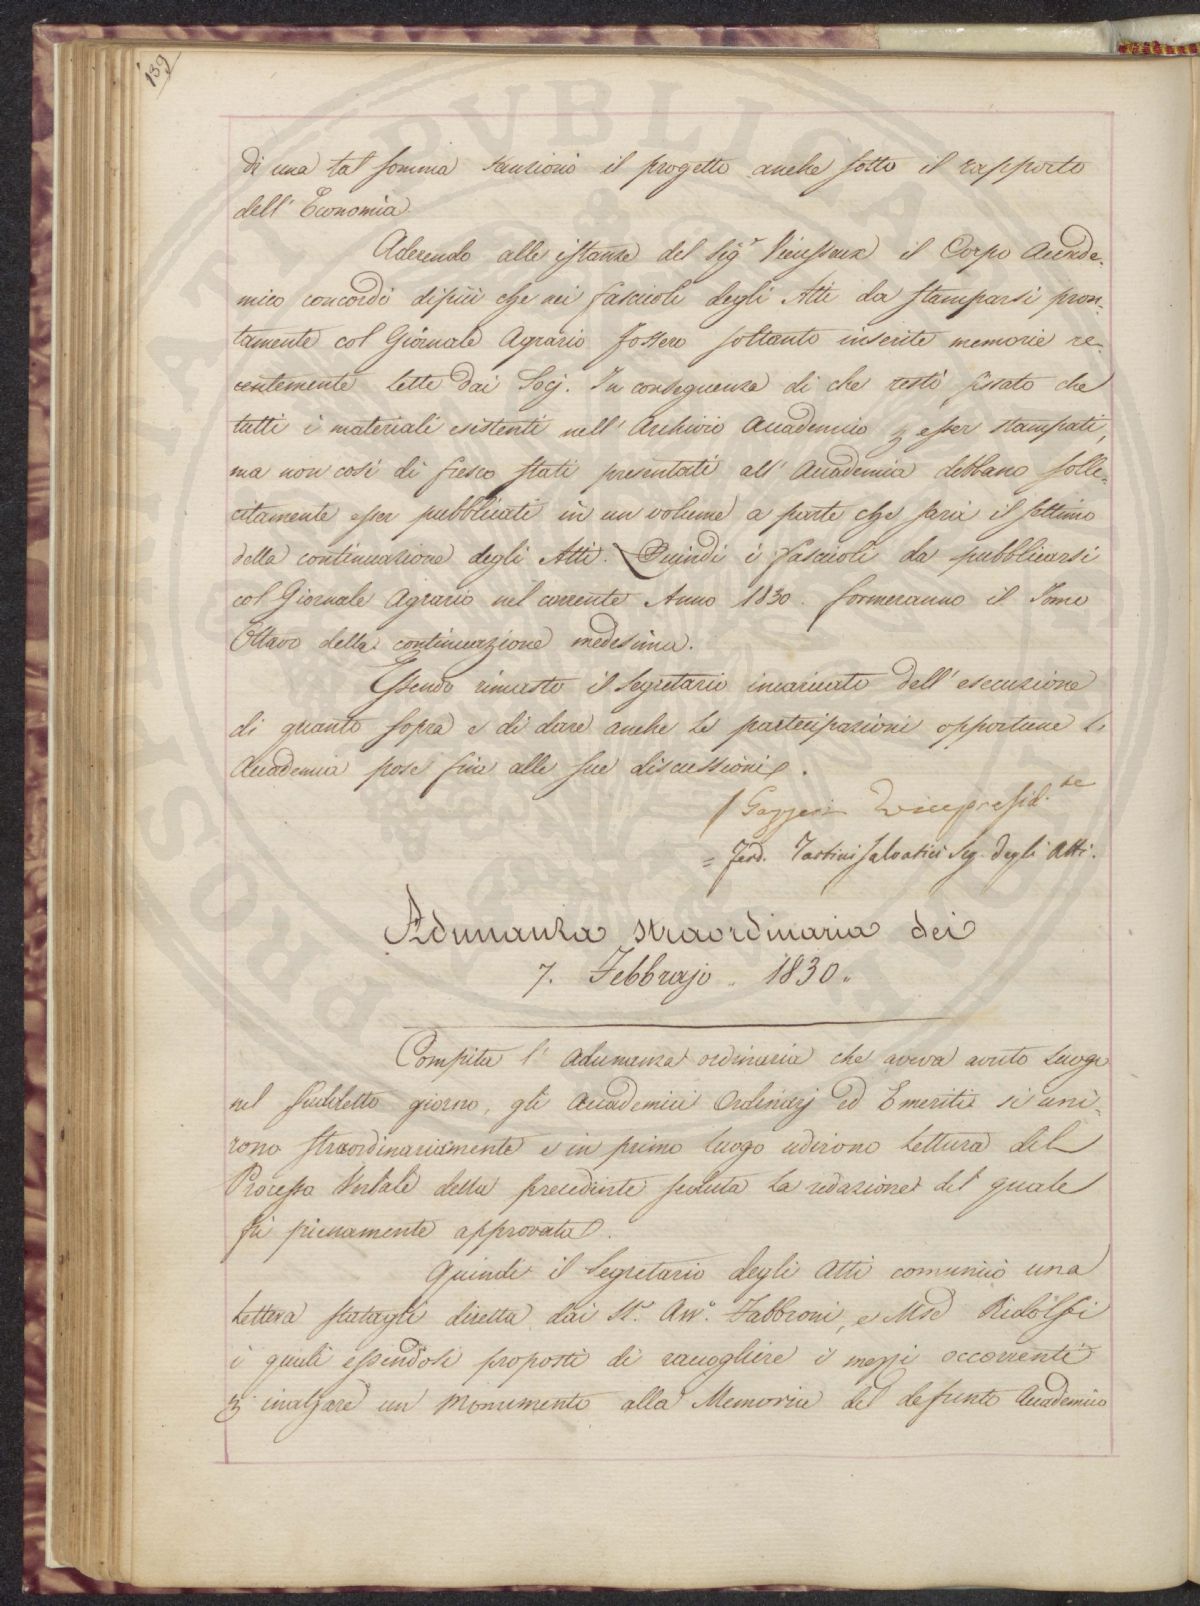 139
di una tal somma sanzionò il progetto anche sotto il rapporto
dell'Economia
Aderendo alle istanze del Sig.r Vieusseux il Corpo Accade-
mico concordi dispici che nei fascicoli degli Atti da stamparsi pron-
tamente col Giornale Agrario fossero soltanto inserite memorie re-
centemente lette dai Socj. In conseguenza di che restò fissato che
tutti i materiali esistenti nell'Archivio Accademico p esser stampati,
ma non così di fresco stati presentati all'Accademia debbano solle-
citamente esser pubblicati in un volume a parte che sarà il settimo
della continuazione degli Atti. Quindi i fascicoli da pubblicarsi
col Giornale Agrario nel corrente Anno 1830. formeranno il Tomo
Ottavo della continuazione medesima.
Essendo rimasto il Segretario incaricato dell'esecuzione
di quanto sopra e di dare anche le partecipazioni opportune l'
Accademia pose fine alle sue discussioni.
Gazzeri Vicepresid.te
= Ferd. Tartini Salvatici Seg. degli Atti.
Adunanza straordinaria dei
7. Febbrajo .. 1830..
Compita l'Adunanza ordinaria che aveva avuto luogo
nel suddetto giorno, gli Accademici Ordinarj ed Emeriti si uni-
rono straordinariamente e in primo luogo udirono lettura del
Processo Verbale della precedente seduta la redazione del quale
fù pienamente approvata.
Quindi il Segretario degli Atti comunicò una
lettera statagli diretta dai SS.ri Avv.o Fabbroni, e Mse Ridolfi
i quali essendosi proposti di raccogliere i mezzi occorrenti
p inalzare un Monumento alla Memoria del defunto Accademico
PUBLICA